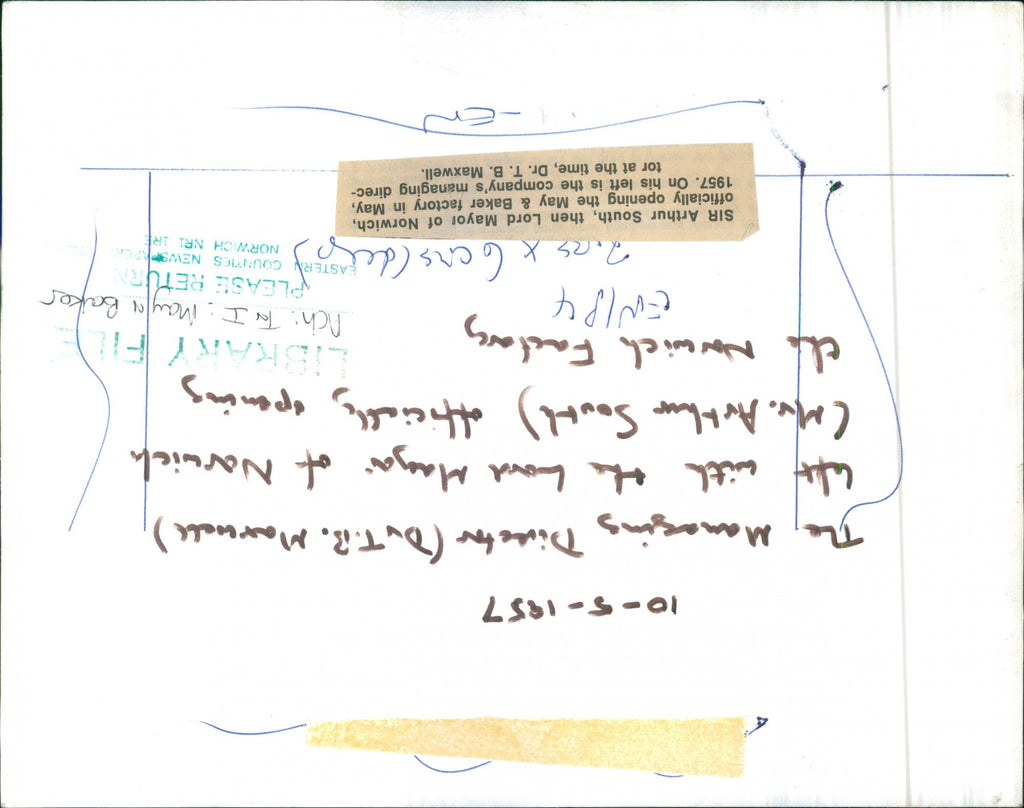 10-5-1957
The Managing Director (Dr T.B. Maxwell)
left with the Lord Mayor of Norwich
(Mr. Arthur South) officially opening
the Norwich Factory
LIBRARY FILE
PLEASE RETURN
EASTERN COUNTIES NEWSPAPERS
NORWICH NR1 1RE
TN I: May & Baker
EN/P4
SIR Arthur South, then Lord Mayor of Norwich,
officially opening the May & Baker factory in May,
1957. On his left is the company's managing direc-
tor at the time, Dr. T. B. Maxwell.
EN